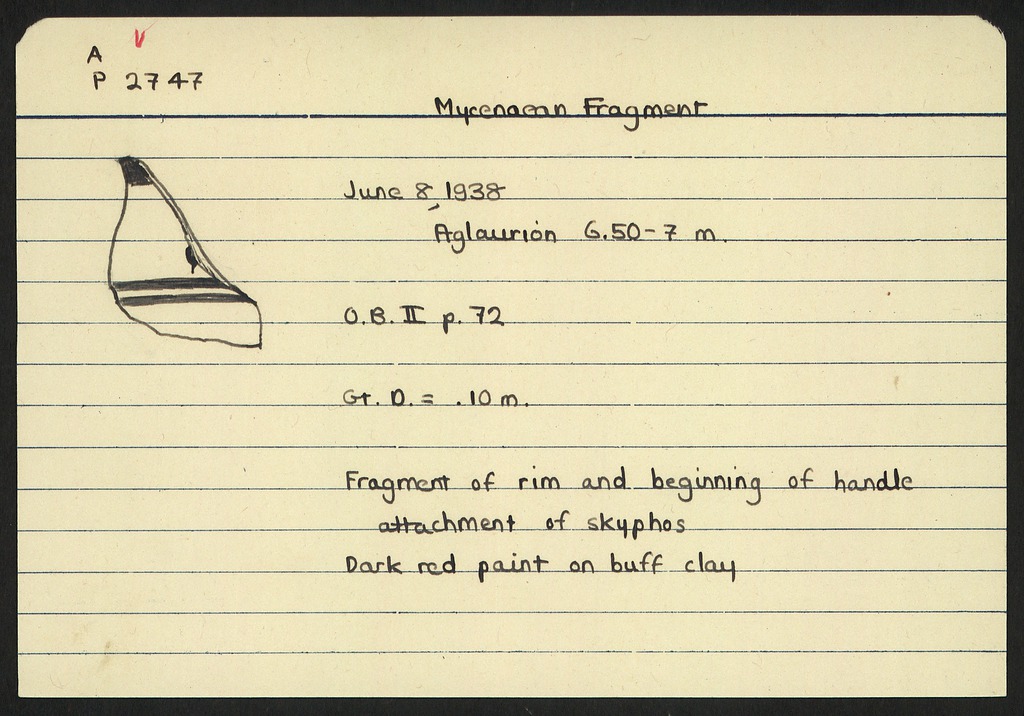 A
P 2747
Mycenaean Fragment
June 8, 1938
Aglaurion 6.50-7 m.
O.B. II p. 72
Gt. D. = .10 m.
Fragment of rim and beginning of handle
attachment of skyphos
Dark red paint on buff clay